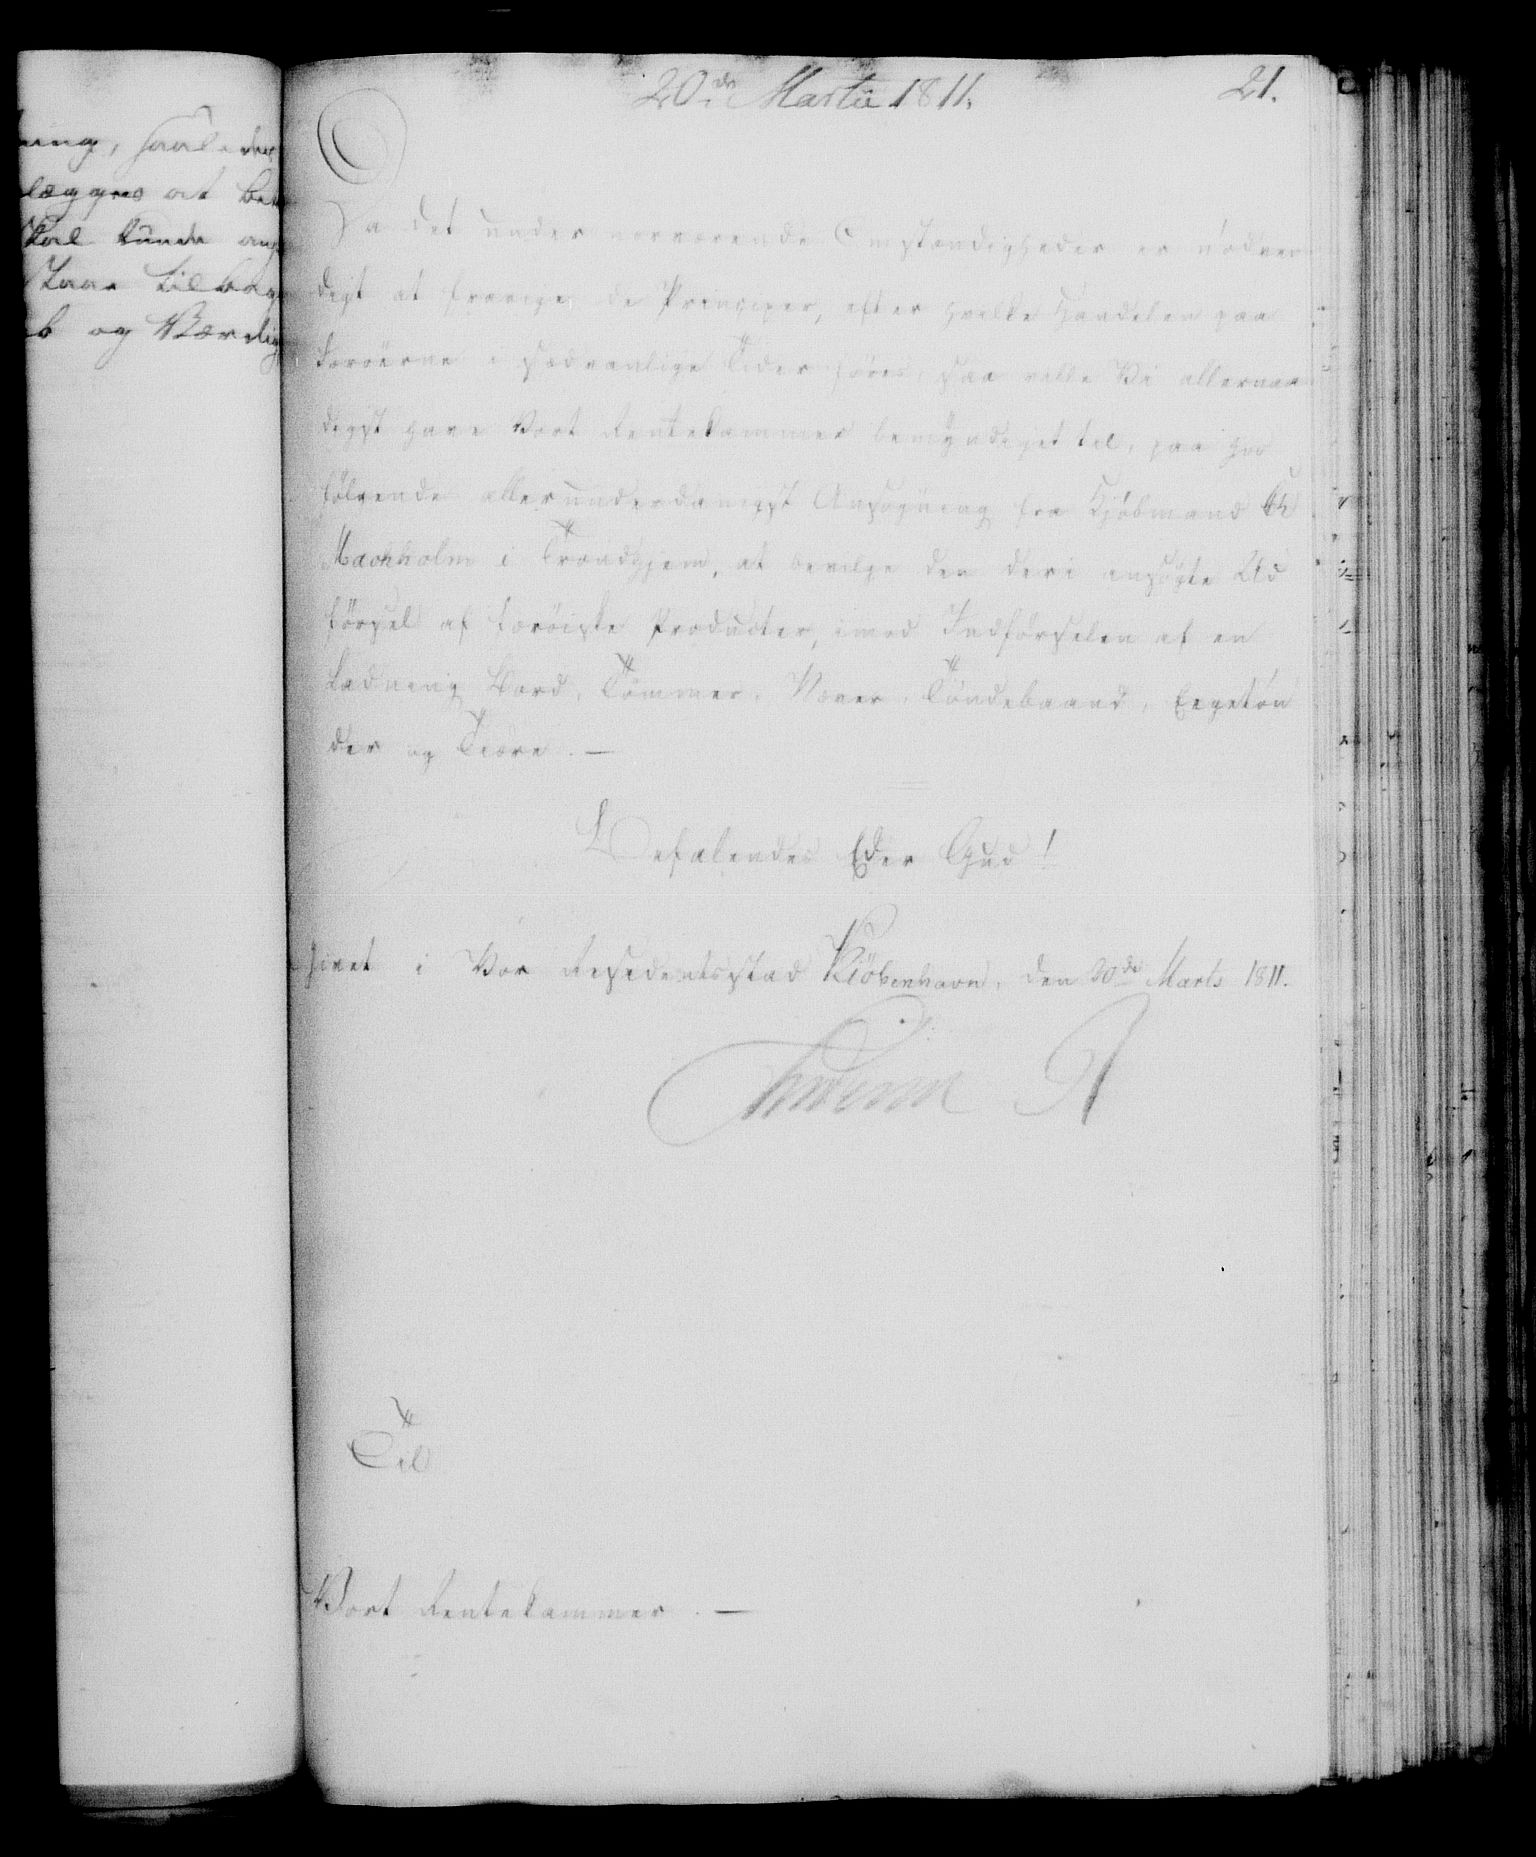 20de Martii 1811.
21.
ning, saaledes
lægges at be
skal kunde an
staae tilbage
b og Værdig
Da det under nærværende Omstændigheder er nødven
digt at fravige de Principer, efter hvilke Handelen paa
Færöerne i sædvanlige Tider føres, saa ville Vi allernaa
digst have Vort Rentekammer bemyndiget til, paa her
følgende allerunderdanigst Ansøgning fra Kjøbmand
Hachholm i Trondhjem, at bevilge den deri ansøgte Ud
førsel af færøiske Producter, imod Indførselen af en
Ladning Bord, Tømmer, Næver, Tøndebaand, Eegetøn
der og Tiære. —
Befalendes Eder Gud!
Givet i Vor Residentsstad Kiöbenhavn, den 20de Marts 1811.
Frederik R
Til
Vort Rentekammer. —